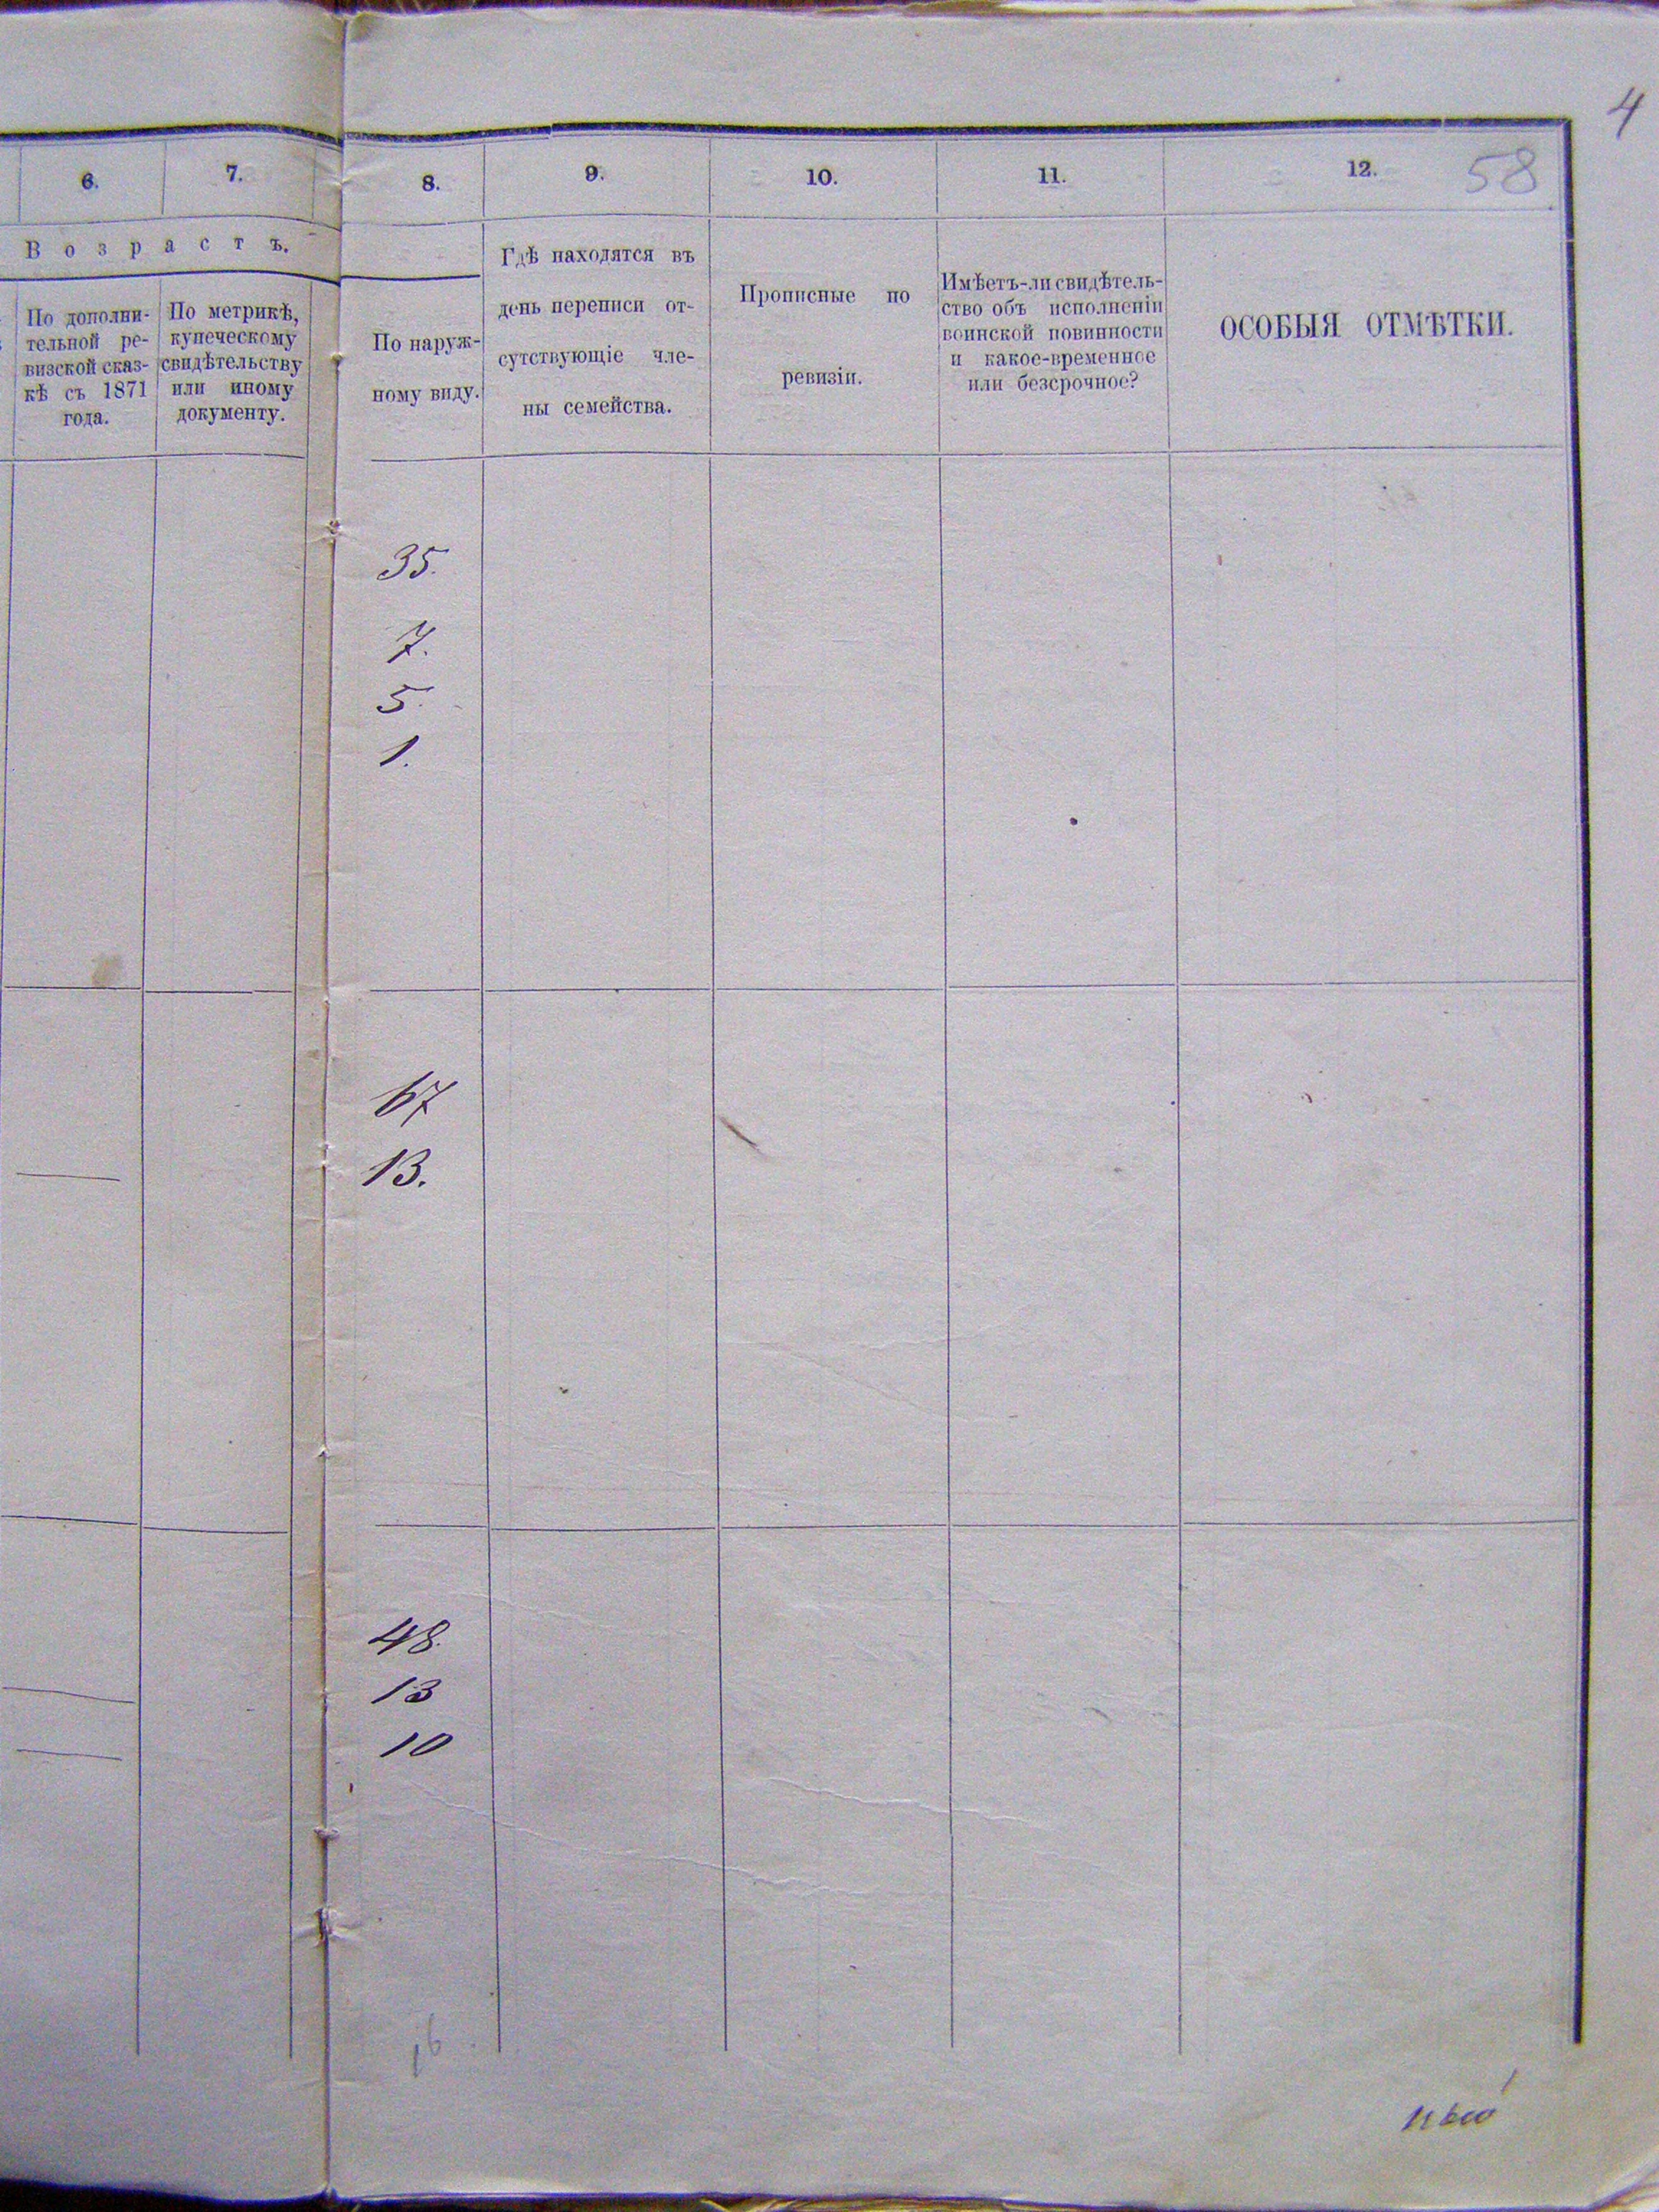 4
58
6. 7. 8. 9. 10. 11. 12.
Возрастъ.
По дополни-
тельной ре-
визской сказ-
кѣ съ 1871
года.
По метрикѣ,
купеческому
свидѣтельству
или иному
документу.
По наруж-
ному виду.
Гдѣ находятся въ
день переписи от-
сутствующіе чле-
ны семейства.
Прописные по
ревизіи.
Имѣетъ-ли свидѣтель-
ство объ исполненіи
воинской повинности
и какое-временное
или безсрочное?
ОСОБЫЯ ОТМѢТКИ.
35.
7.
5.
1.
67
13.
48.
13
10
16